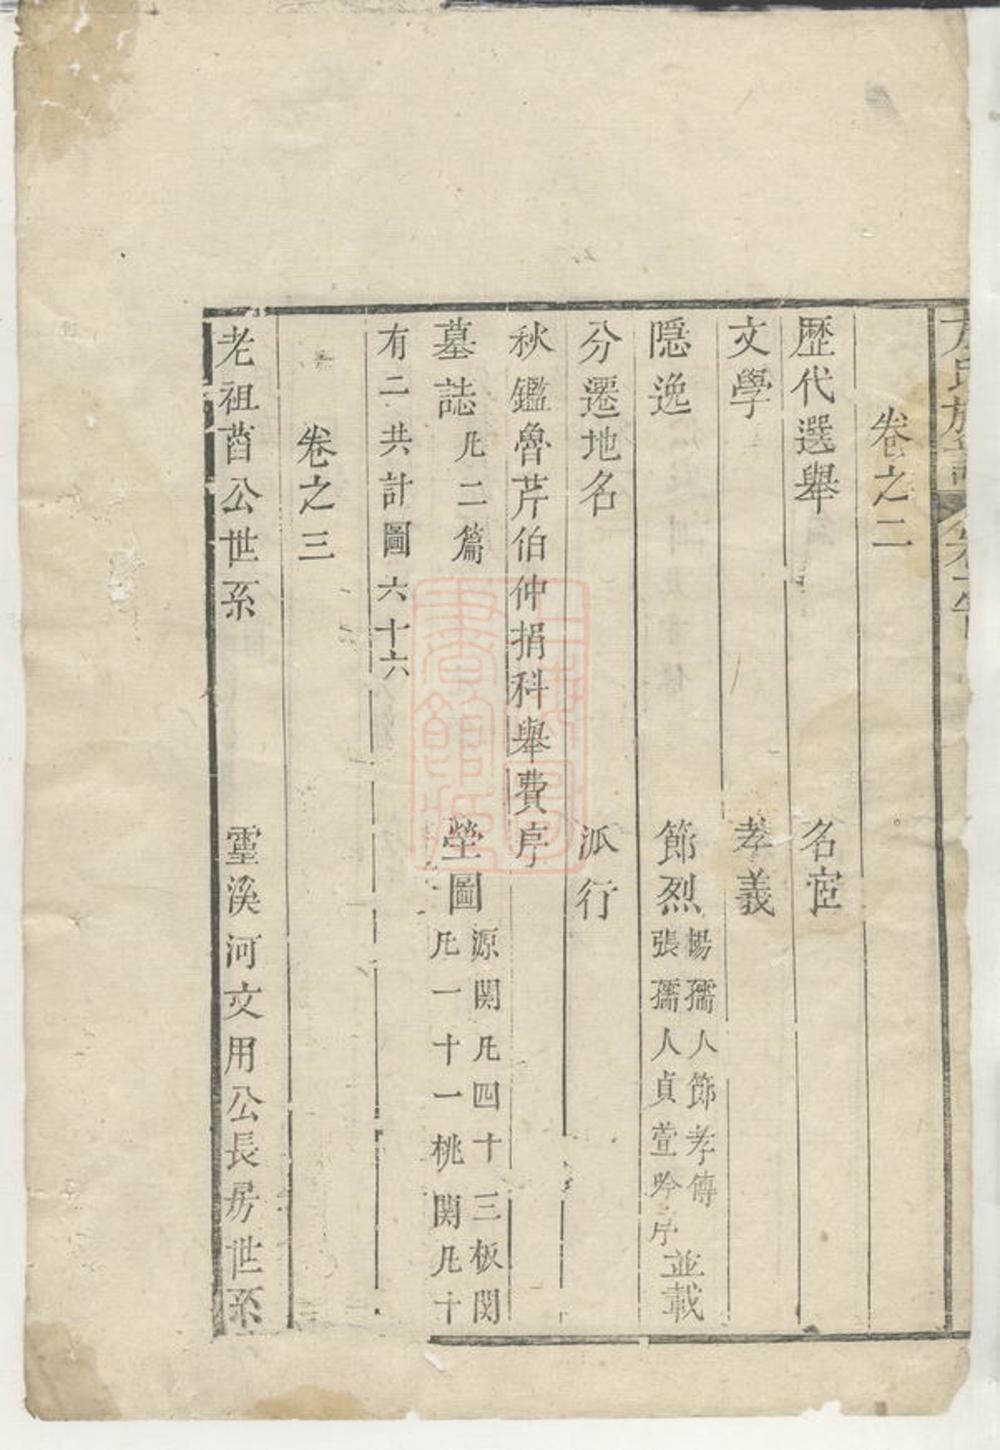 方氏族譜
卷之首
卷之二
歷代選舉 名宦
文學 孝義
隱逸 節烈 楊孺人節孝傳 張孺人貞萱吟序 並載
分遷地名 派行
秋鑑魯芹伯仲捐科舉費序
墓誌 凡二篇 塋圖 源関凡四十三板関 凡一十一桃関凡十
有二共計圖六十六
卷之三
老祖酋公世系 靈溪河文用公長房世系
上海圖書館藏